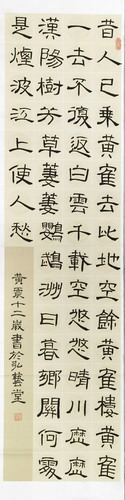 昔人已乘黃隺去此地空餘黃隺樓黃隺
一去不復返白雲千載空悠悠晴川歷歷
漢陽樹芳草萋萋鸚鵡洲日暮鄉關何處
是煙波江上使人愁
黃宸十二歲書於弘藝堂